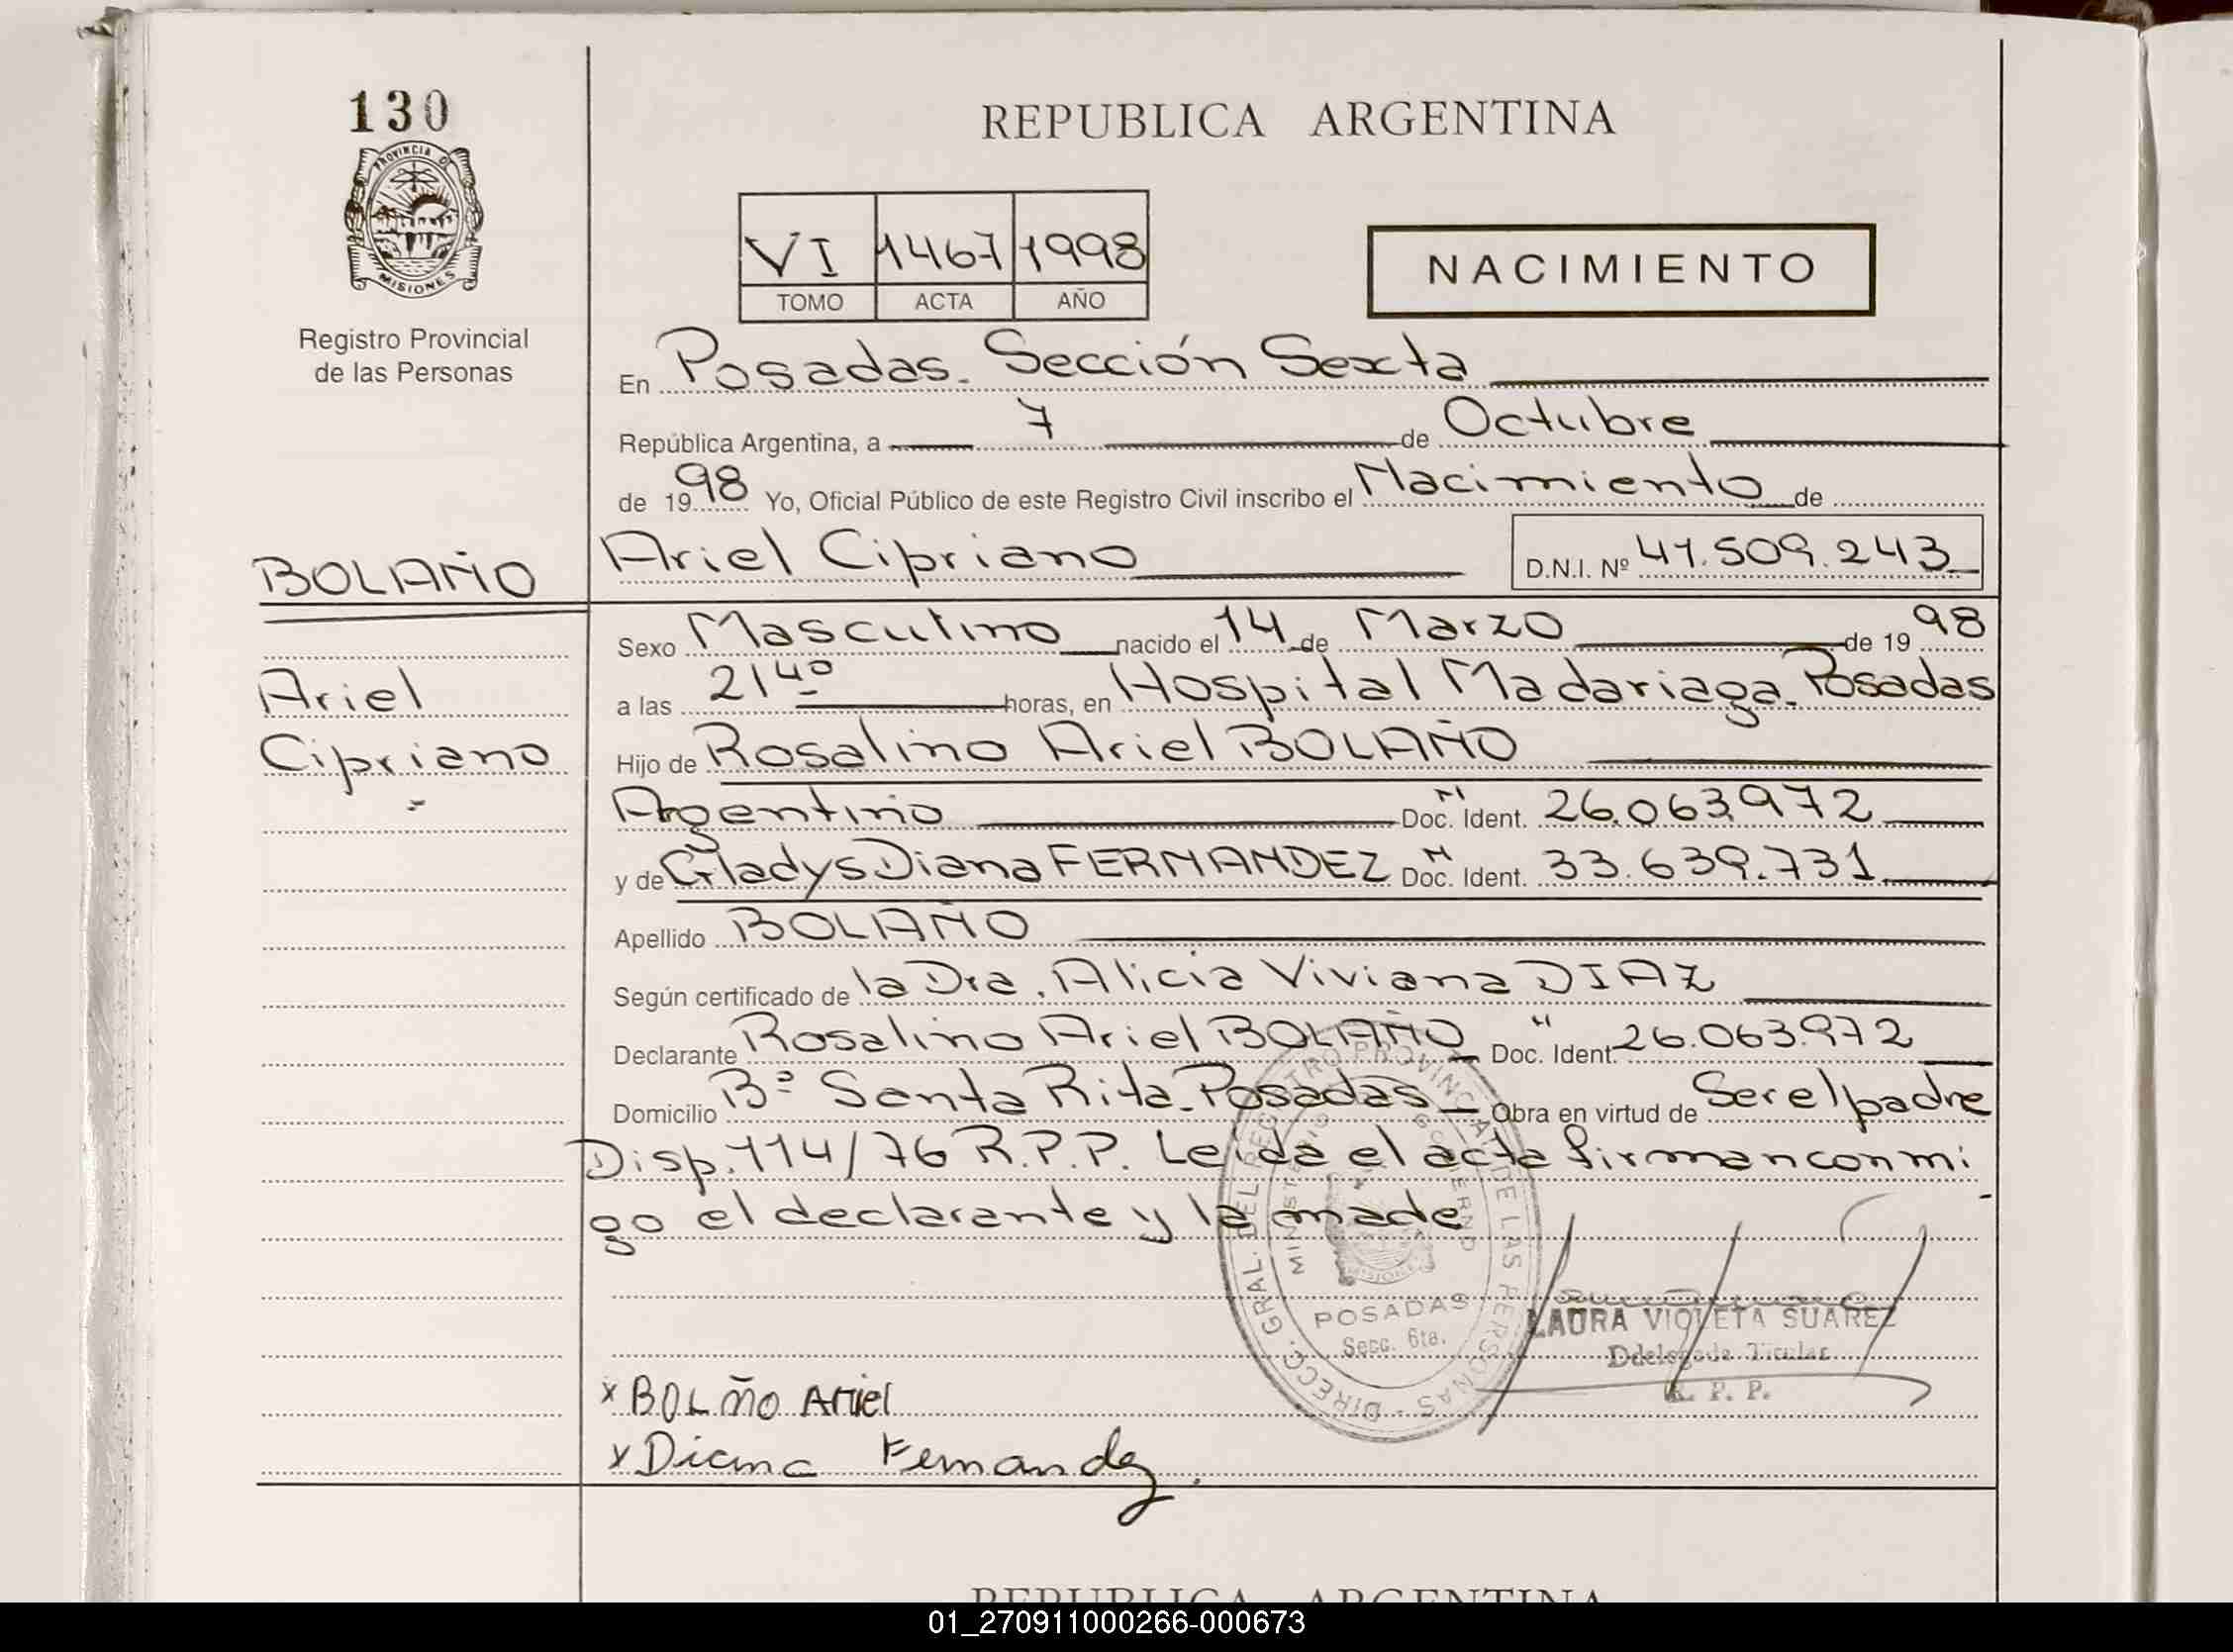 130
PROVINCIA DE
MISIONES
Registro Provincial
de las Personas
REPUBLICA ARGENTINA
VI 1467 1998
TOMO ACTA AÑO
NACIMIENTO
En Posadas. Sección Sexta
República Argentina, a 7 de Octubre
de 1998 Yo, Oficial Público de este Registro Civil inscribo el Nacimiento de
BOLAÑO
Ariel Cipriano D.N.I. Nº 41.509.243
Ariel
Cipriano
Sexo Masculino nacido el 14 de Marzo de 1998
a las 21 40 horas, en Hospital Madariaga. Posadas
Hijo de Rosalino Ariel BOLAÑO
Argentino Doc. N Ident. 26.063.972
y de Gladys Diana FERNANDEZ Doc. N Ident. 33.639.731
Apellido BOLAÑO
Según certificado de la Dra. Alicia Viviana DIAZ
Declarante Rosalino Ariel BOLAÑO Doc. " Ident. 26.063.972
Domicilio Bº Santa Rita. Posadas Obra en virtud de Ser el padre
Disp. 114/76 R.P.P. Leída el acta firman conmi
go el declarante y la made
DIRECC. GRAL. DEL REGISTRO PROVINCIAL DE LAS PERSONAS
MINISTERIO GOBIERNO
MISIONES
POSADAS
Secc. 6ta.
LAURA VIOLETA SUAREZ
Ddelegada Titular
R. P. P.
x BOLÑO Ariel
x Diana Fernandez.
REPUBLICA ARGENTINA
01_270911000266-000673